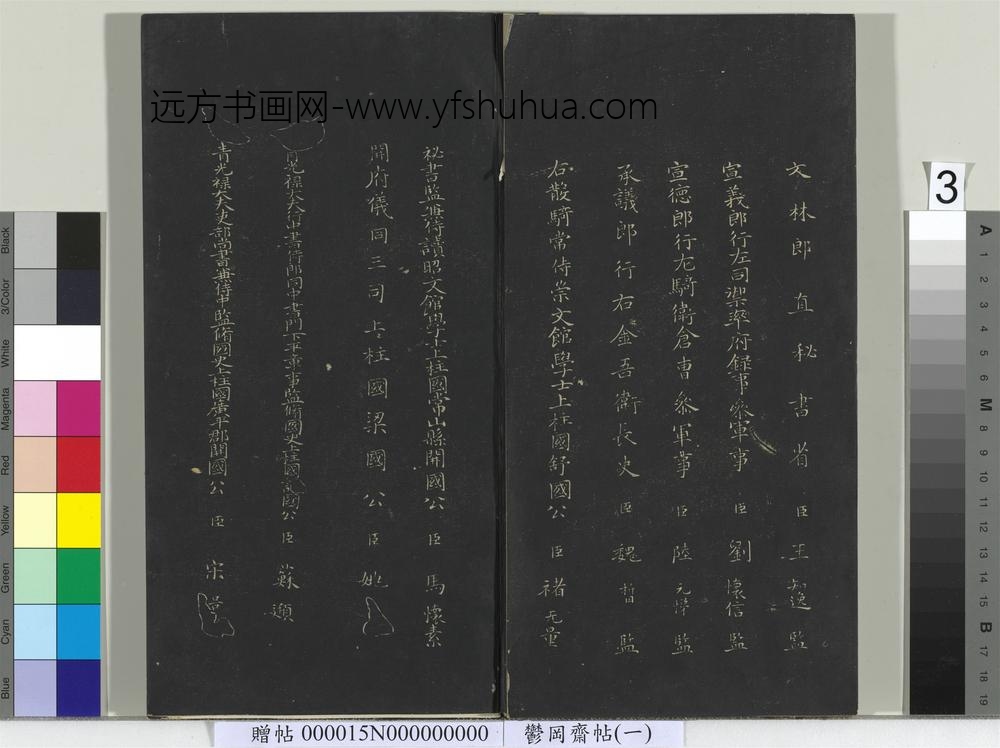 远方书画网-www.yfshuhua.com
文林郎直秘書省臣王知逸監
宣義郎行左司禦率府録事參軍事臣劉懷信監
宣德郎行左驍衛倉曹參軍事臣陸元悌監
承議郎行右金吾衛長史臣魏哲監
右散騎常侍崇文館學士上柱國舒國公臣褚无量
秘書監兼侍讀昭文館學士上柱國常山縣開國公臣馬懷素
開府儀同三司上柱國梁國公臣姚
光祿大夫行中書侍郎同中書門下平章事監脩國史上柱國國公臣蘇頲
青光祿大夫吏部尚書兼侍中監脩國史上柱國廣平郡開國公臣宋
3
Black
3/Color
White
Magenta
Red
Yellow
Green
Cyan
Blue
A
1
2
3
4
5
6
M
8
9
10
11
12
13
14
15
B
17
18
19
贈帖 000015N000000000
鬱岡齋帖(一)